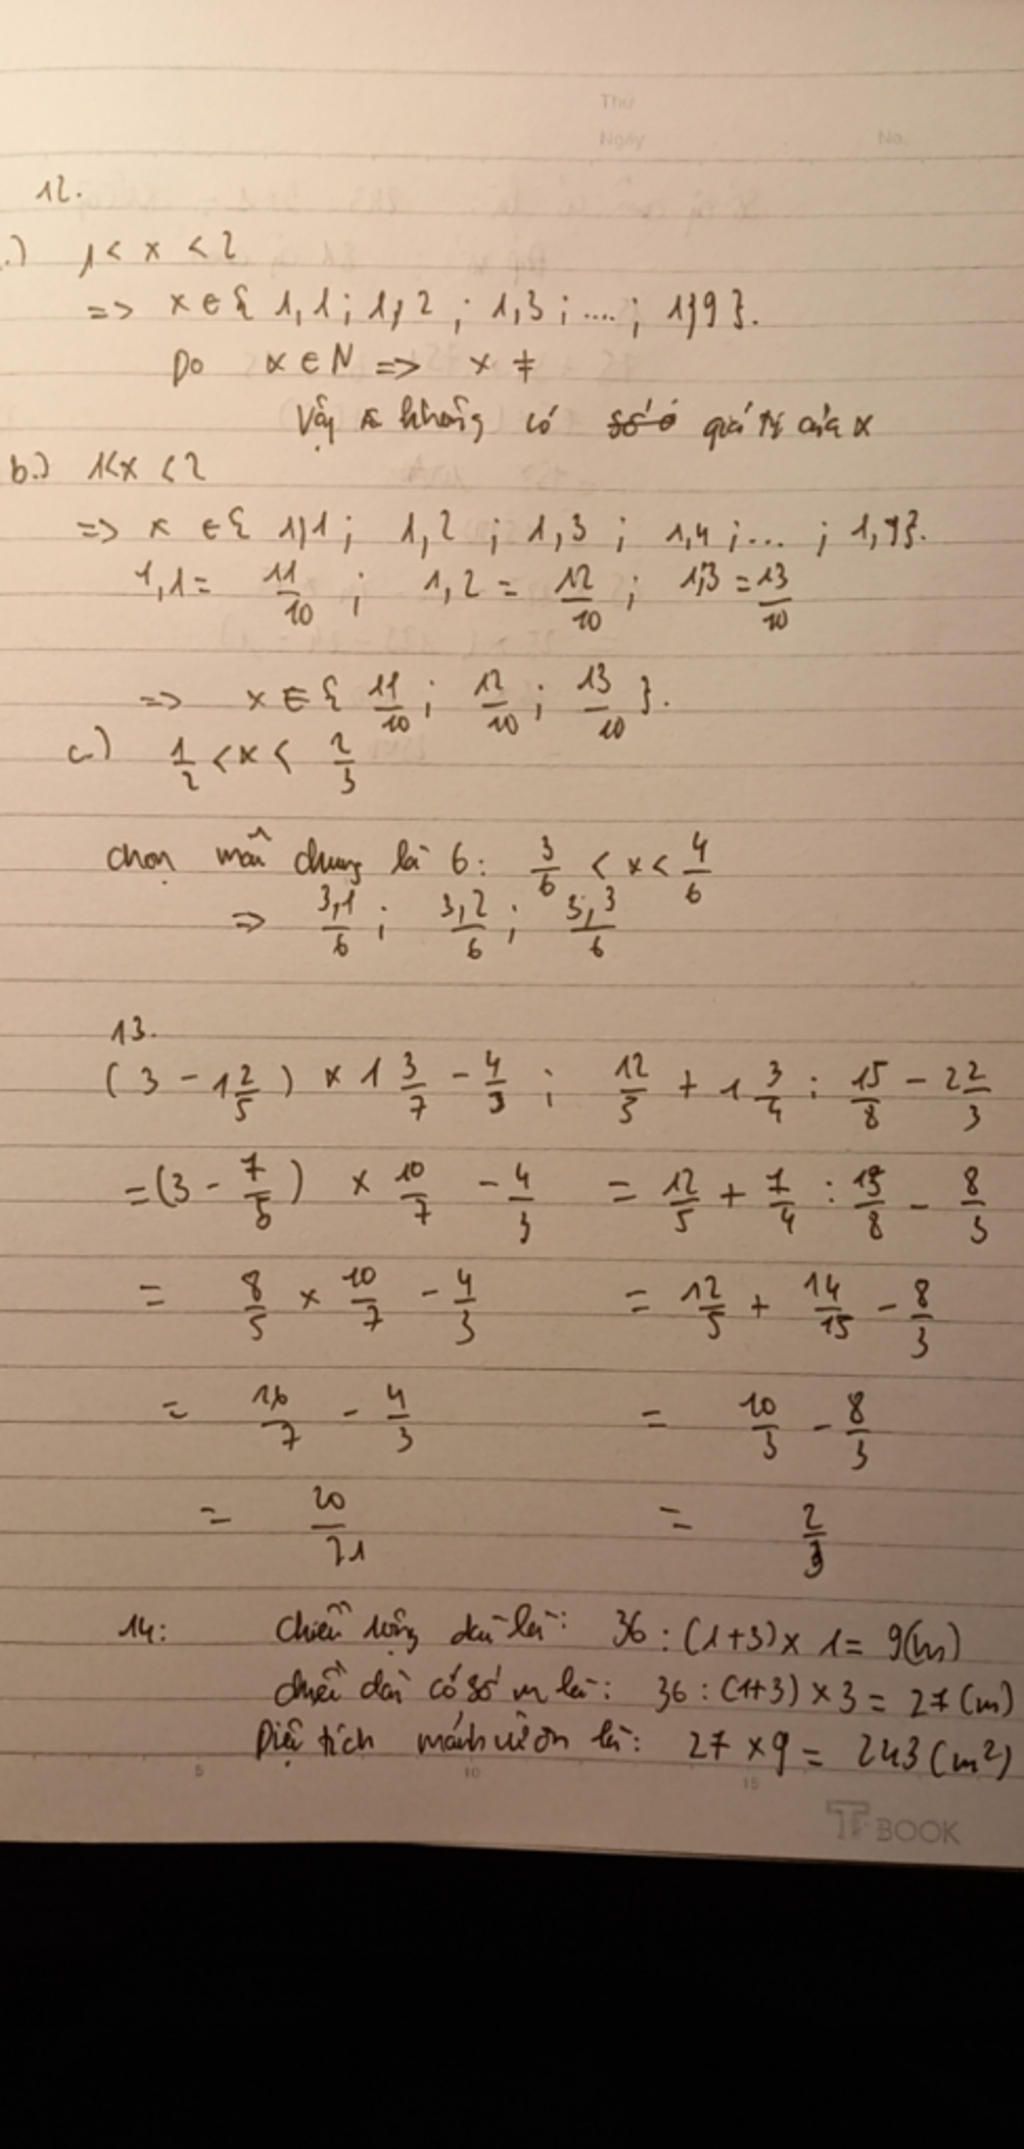 Thứ
Ngày No.
12.
.) 1 < x < 2
=> x ∈ { 1,1 ; 1,2 ; 1,3 ; .... ; 1,9 }.
Do x ∈ N => x ≠
Vậy không có giá trị của x
b.) 1<x < 2
=> x ∈ { 1,1 ; 1,2 ; 1,3 ; 1,4 ; ... ; 1,9}.
1,1 = 11/10 ; 1,2 = 12/10 ; 1,3 = 13/10
=> x ∈ { 11/10 ; 12/10 ; 13/10 }.
c) 1/2 < x < 2/3
chọn mẫu chung là 6 : 3/6 < x < 4/6
=> 3,1/6 ; 3,2/6 ; 3,3/6
13.
( 3 - 1 2/5 ) × 1 3/7 - 4/3 ; 12/5 + 1 3/4 : 15/8 - 2 2/3
= (3 - 7/5 ) × 10/7 - 4/3 = 12/5 + 7/4 : 15/8 - 8/3
= 8/5 × 10/7 - 4/3 = 12/5 + 14/15 - 8/3
= 16/7 - 4/3 = 10/3 - 8/3
= 20/21 = 2/3
14: chiều rộng là : 36 : (1+3) × 1 = 9(m)
chiều dài có số m là : 36 : (1+3) × 3 = 27 (m)
Diện tích mảnh vườn là : 27 × 9 = 243 (m²)
5 10 15
TP BOOK